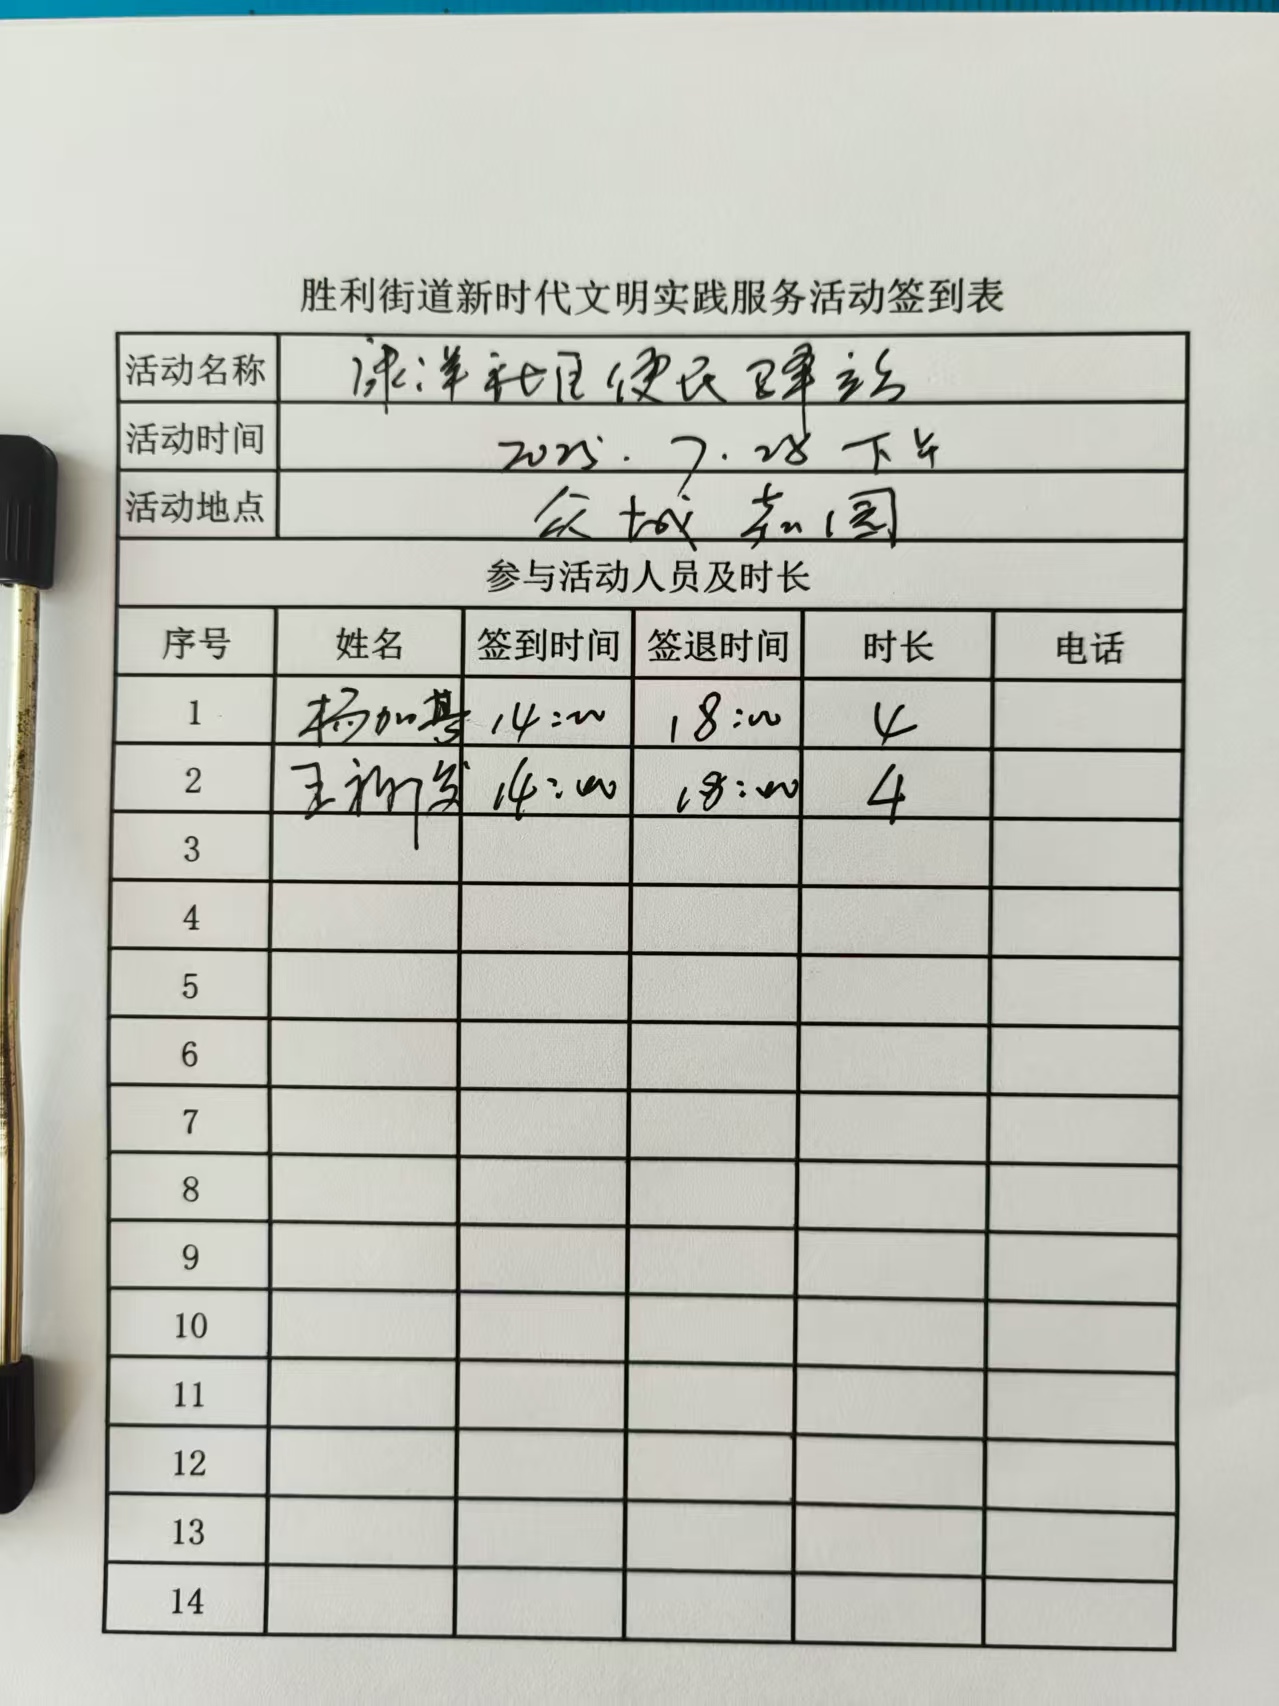 胜利街道新时代文明实践服务活动签到表
活动名称 泳洋社区便民驿站
活动时间 2025.7.28 下午
活动地点 众城嘉园
参与活动人员及时长
序号 姓名 签到时间 签退时间 时长 电话
1 杨加基 14:00 18:00 4
2 王 14:00 18:00 4
3
4
5
6
7
8
9
10
11
12
13
14